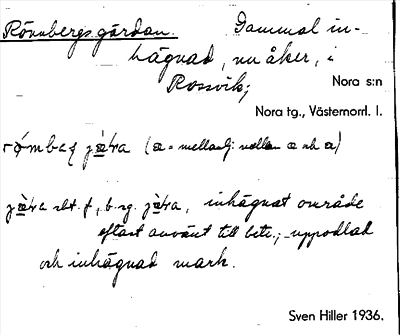 Rönnbergsgärdan. Gammal in-
hägnad, nu åker, i
Rossvik;
Nora s:n
Nora tg., Västernorrl. l.
(a = mellanlj. mellan a och a)
jæ̀ra sbt. f., b. sg. jæ̀ra, inhägnat område
oftast använt till bete; uppodlad
och inhägnad mark.
Sven Hiller 1936.